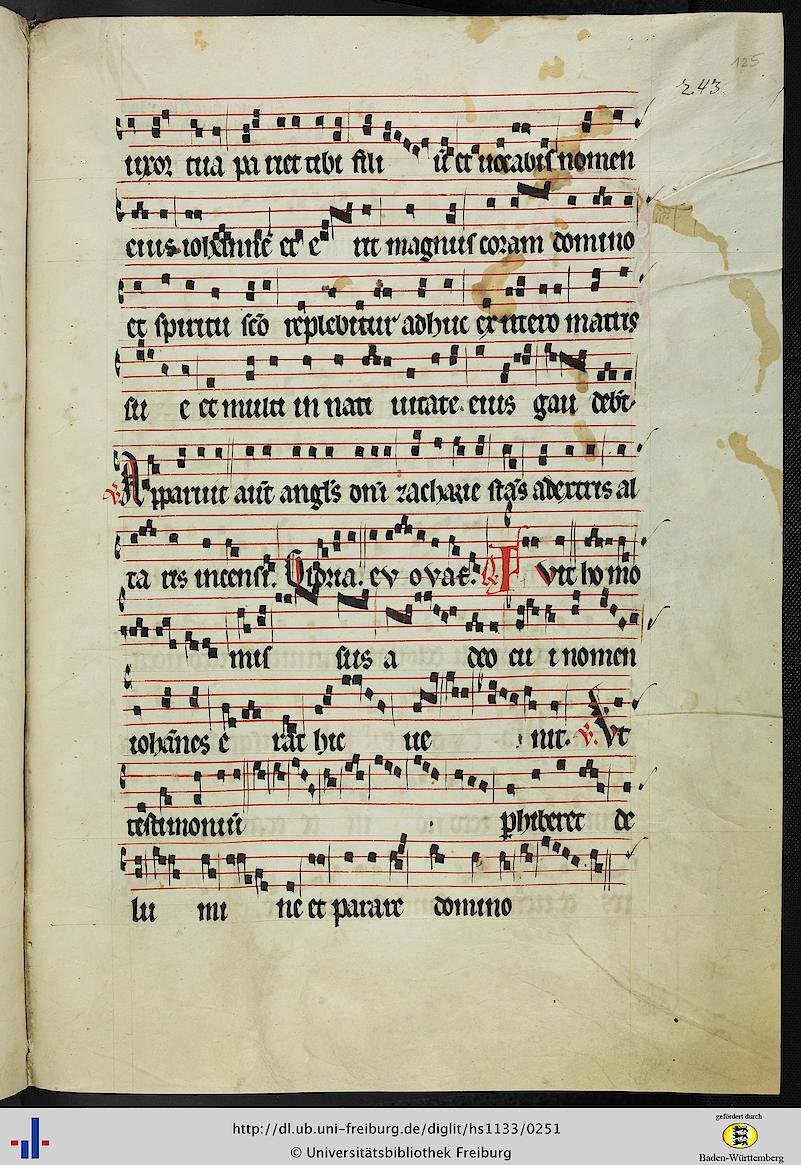 125
243.
uxor tua pa riet tibi fili ū et uocabis nomen
eius iohannē et e rit magnus coram domino
et spiritu scō replebitur adhuc ex utero matris
su e et multi in nati uitate eius gau debt
℣ Apparuit aut angls dni zacharie stās a dextris al
ta ris incensi. Gloria. ev ovae. ℟ Fvit ho mo
mis sus a deo cu i nomen
iohānes e rat hic ue nit. ℣. Vt
testimoniū phiberet de
lu mi ne et parare domino
http://dl.ub.uni-freiburg.de/diglit/hs1133/0251
© Universitätsbibliothek Freiburg
gefördert durch
Baden-Württemberg